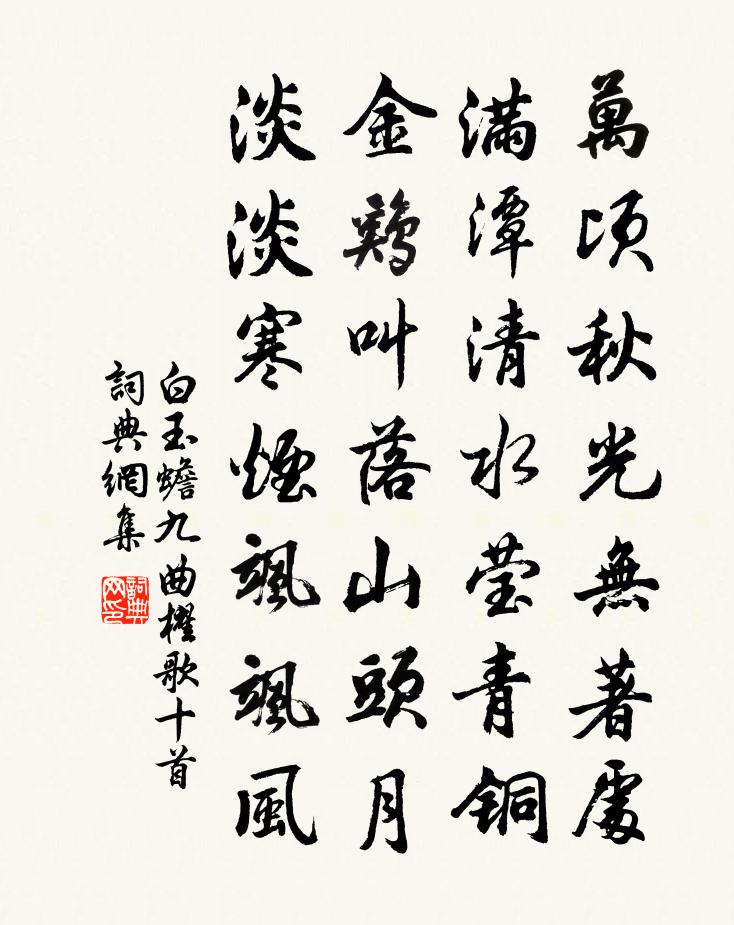 萬頃秋光無著處
滿潭清水莹青铜
金鷄叫落山頭月
淡淡寒煙颯颯風
白玉蟾九曲櫂歌十首
詞典網集
詞典網印